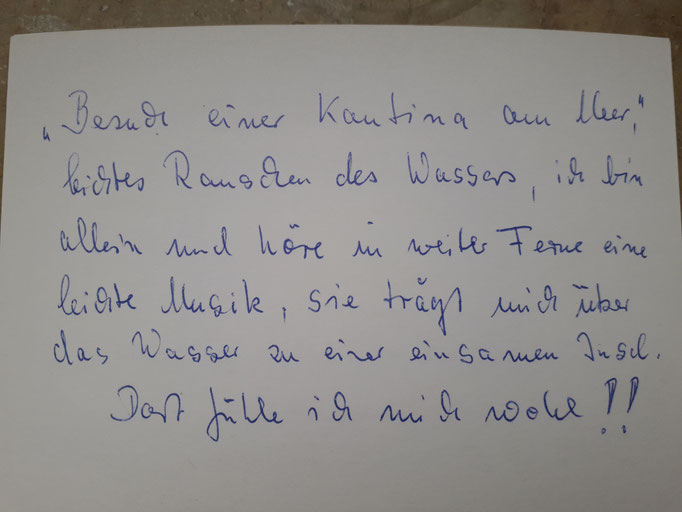 „Besuch einer Kantina am Meer,"
leichtes Rauschen des Wassers, ich bin
allein und höre in weiter Ferne eine
leichte Musik, sie trägt mich über
das Wasser zu einer einsamen Insel.
Dort fühle ich mich wohl !!